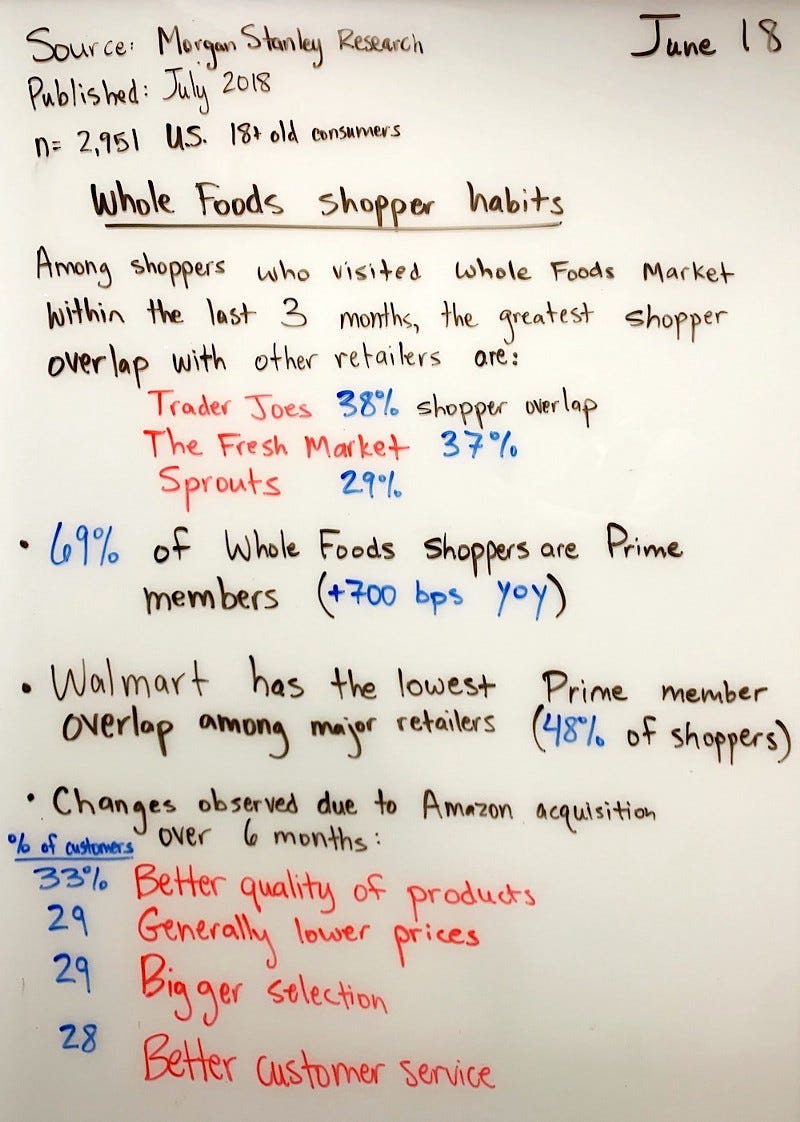 Source: Morgan Stanley Research
June 18
Published: July 2018
n= 2,951 U.S. 18+ old consumers
Whole Foods shopper habits
Among shoppers who visited Whole Foods Market
within the last 3 months, the greatest shopper
overlap with other retailers are:
Trader Joes 38% shopper overlap
The Fresh Market 37%
Sprouts 29%
• 69% of Whole Foods shoppers are Prime
members (+700 bps yoy)
• Walmart has the lowest Prime member
overlap among major retailers (48% of shoppers)
• Changes observed due to Amazon acquisition
over 6 months:
% of customers
33% Better quality of products
29 Generally lower prices
29 Bigger selection
28 Better customer service